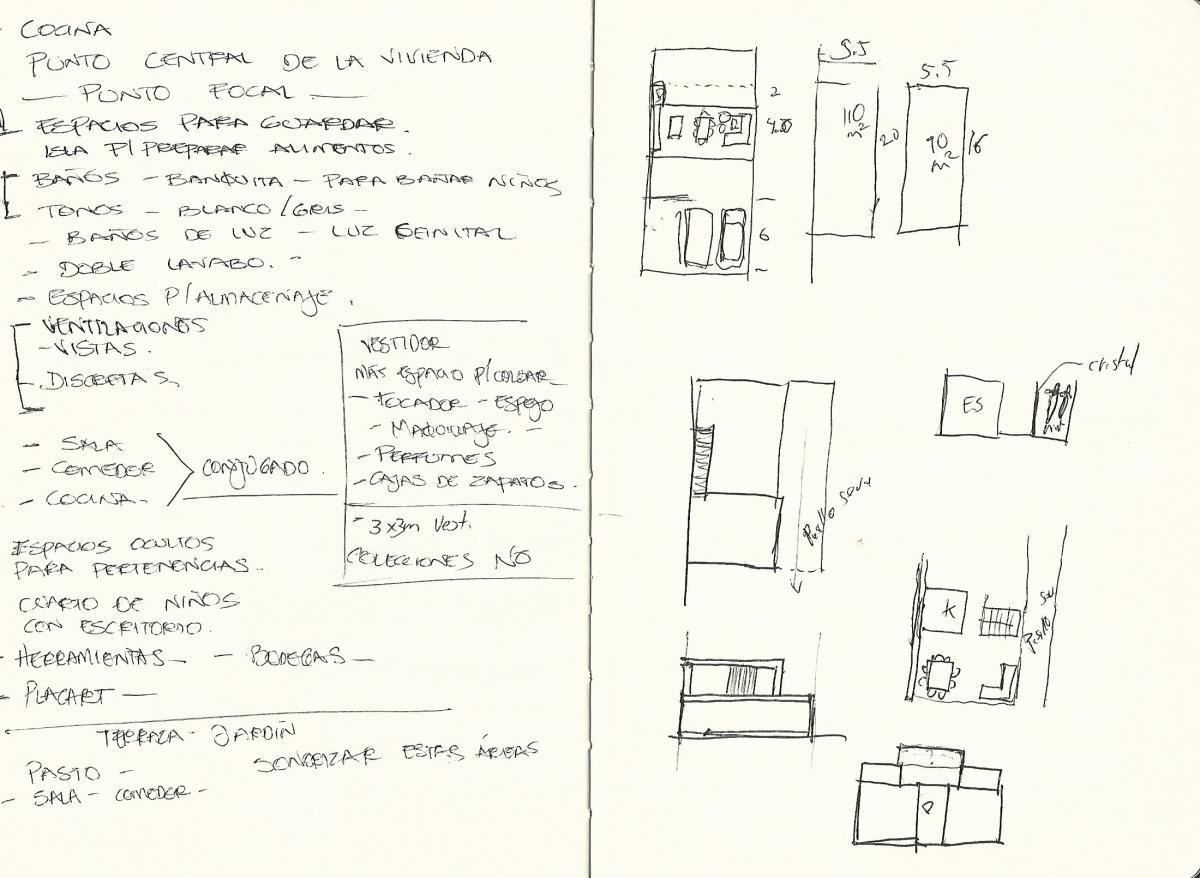 - COCINA
PUNTO CENTRAL DE LA VIVIENDA
— PUNTO FOCAL —
ESPACIOS PARA GUARDAR.
ISLA P/PREPARAR ALIMENTOS.
BAÑOS - BANQUITA - PARA BAÑAR NIÑOS
TONOS - BLANCO/GRIS -
- BAÑOS DE LUZ - LUZ
- DOBLE LAVABO. -
- ESPACIOS P/ALMACENAJE.
VENTILACIONES
- VISTAS.
- DISCRETAS,
- SALA
- COMEDOR
- COCINA -
CONJUGADO.
VESTIDOR
MÁS ESPACIO P/COLGAR
- TOCADOR - ESPEJO
- MAQUILLAJE. -
- PERFUMES
- CAJAS DE ZAPATOS.
- 3x3m Vest.
COLECCIONES NO
ESPACIOS OCULTOS
PARA PERTENENCIAS -
CUARTO DE NIÑOS
CON ESCRITORIO.
- HERRAMIENTAS - - BODEGAS -
- PLACART —
TERRAZA - JARDÍN
SONORIZAR ESTAS ÁREAS
PASTO -
- SALA - COMEDOR -
2
6
5.5
110
m²
20
5.5
90
m²
16
cristal
ES
Pasillo serv
K
Pasillo